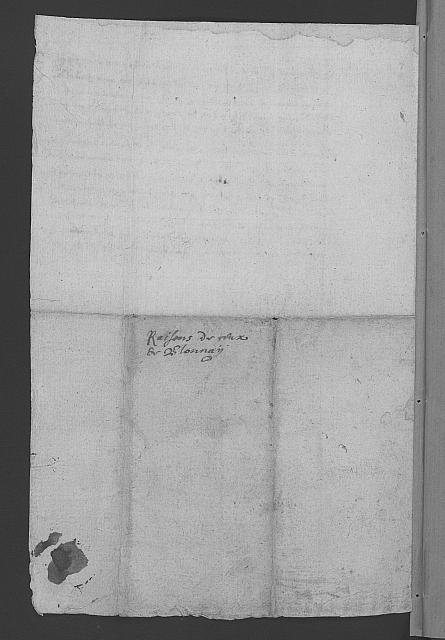 Raisons de ceux
de Blonnaÿ